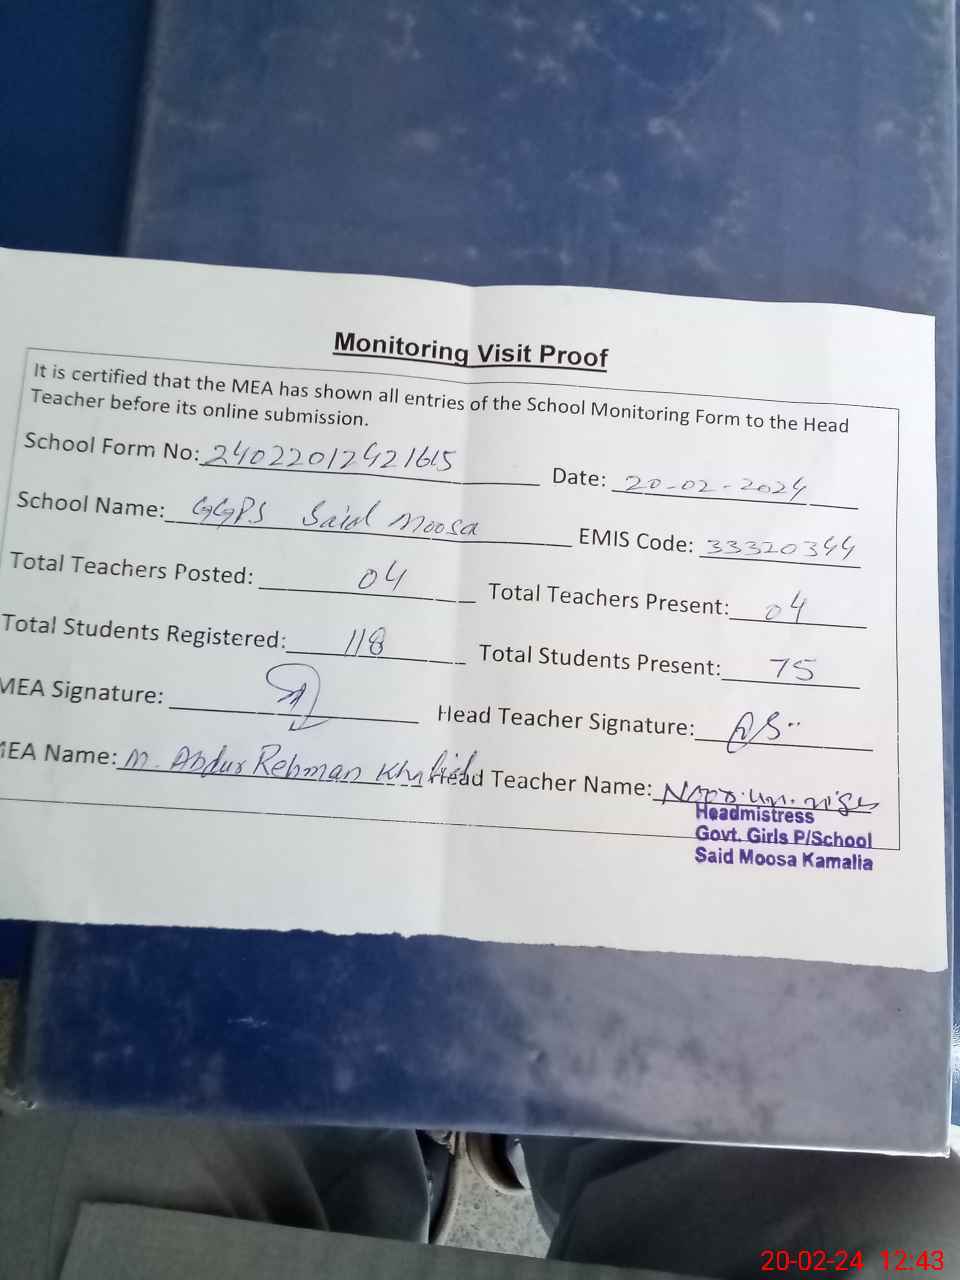 Monitoring Visit Proof
It is certified that the MEA has shown all entries of the School Monitoring Form to the Head
Teacher before its online submission.
School Form No: 24022012421615 Date: 20-02-2024
School Name: GGPS Said Moosa EMIS Code: 33320344
Total Teachers Posted: 04 Total Teachers Present: 04
Total Students Registered: 118 Total Students Present: 75
MEA Signature: Head Teacher Signature:
MEA Name: M. Abdur Rehman Khalid Head Teacher Name:
Headmistress
Govt. Girls P/School
Said Moosa Kamalia
20-02-24 12:43